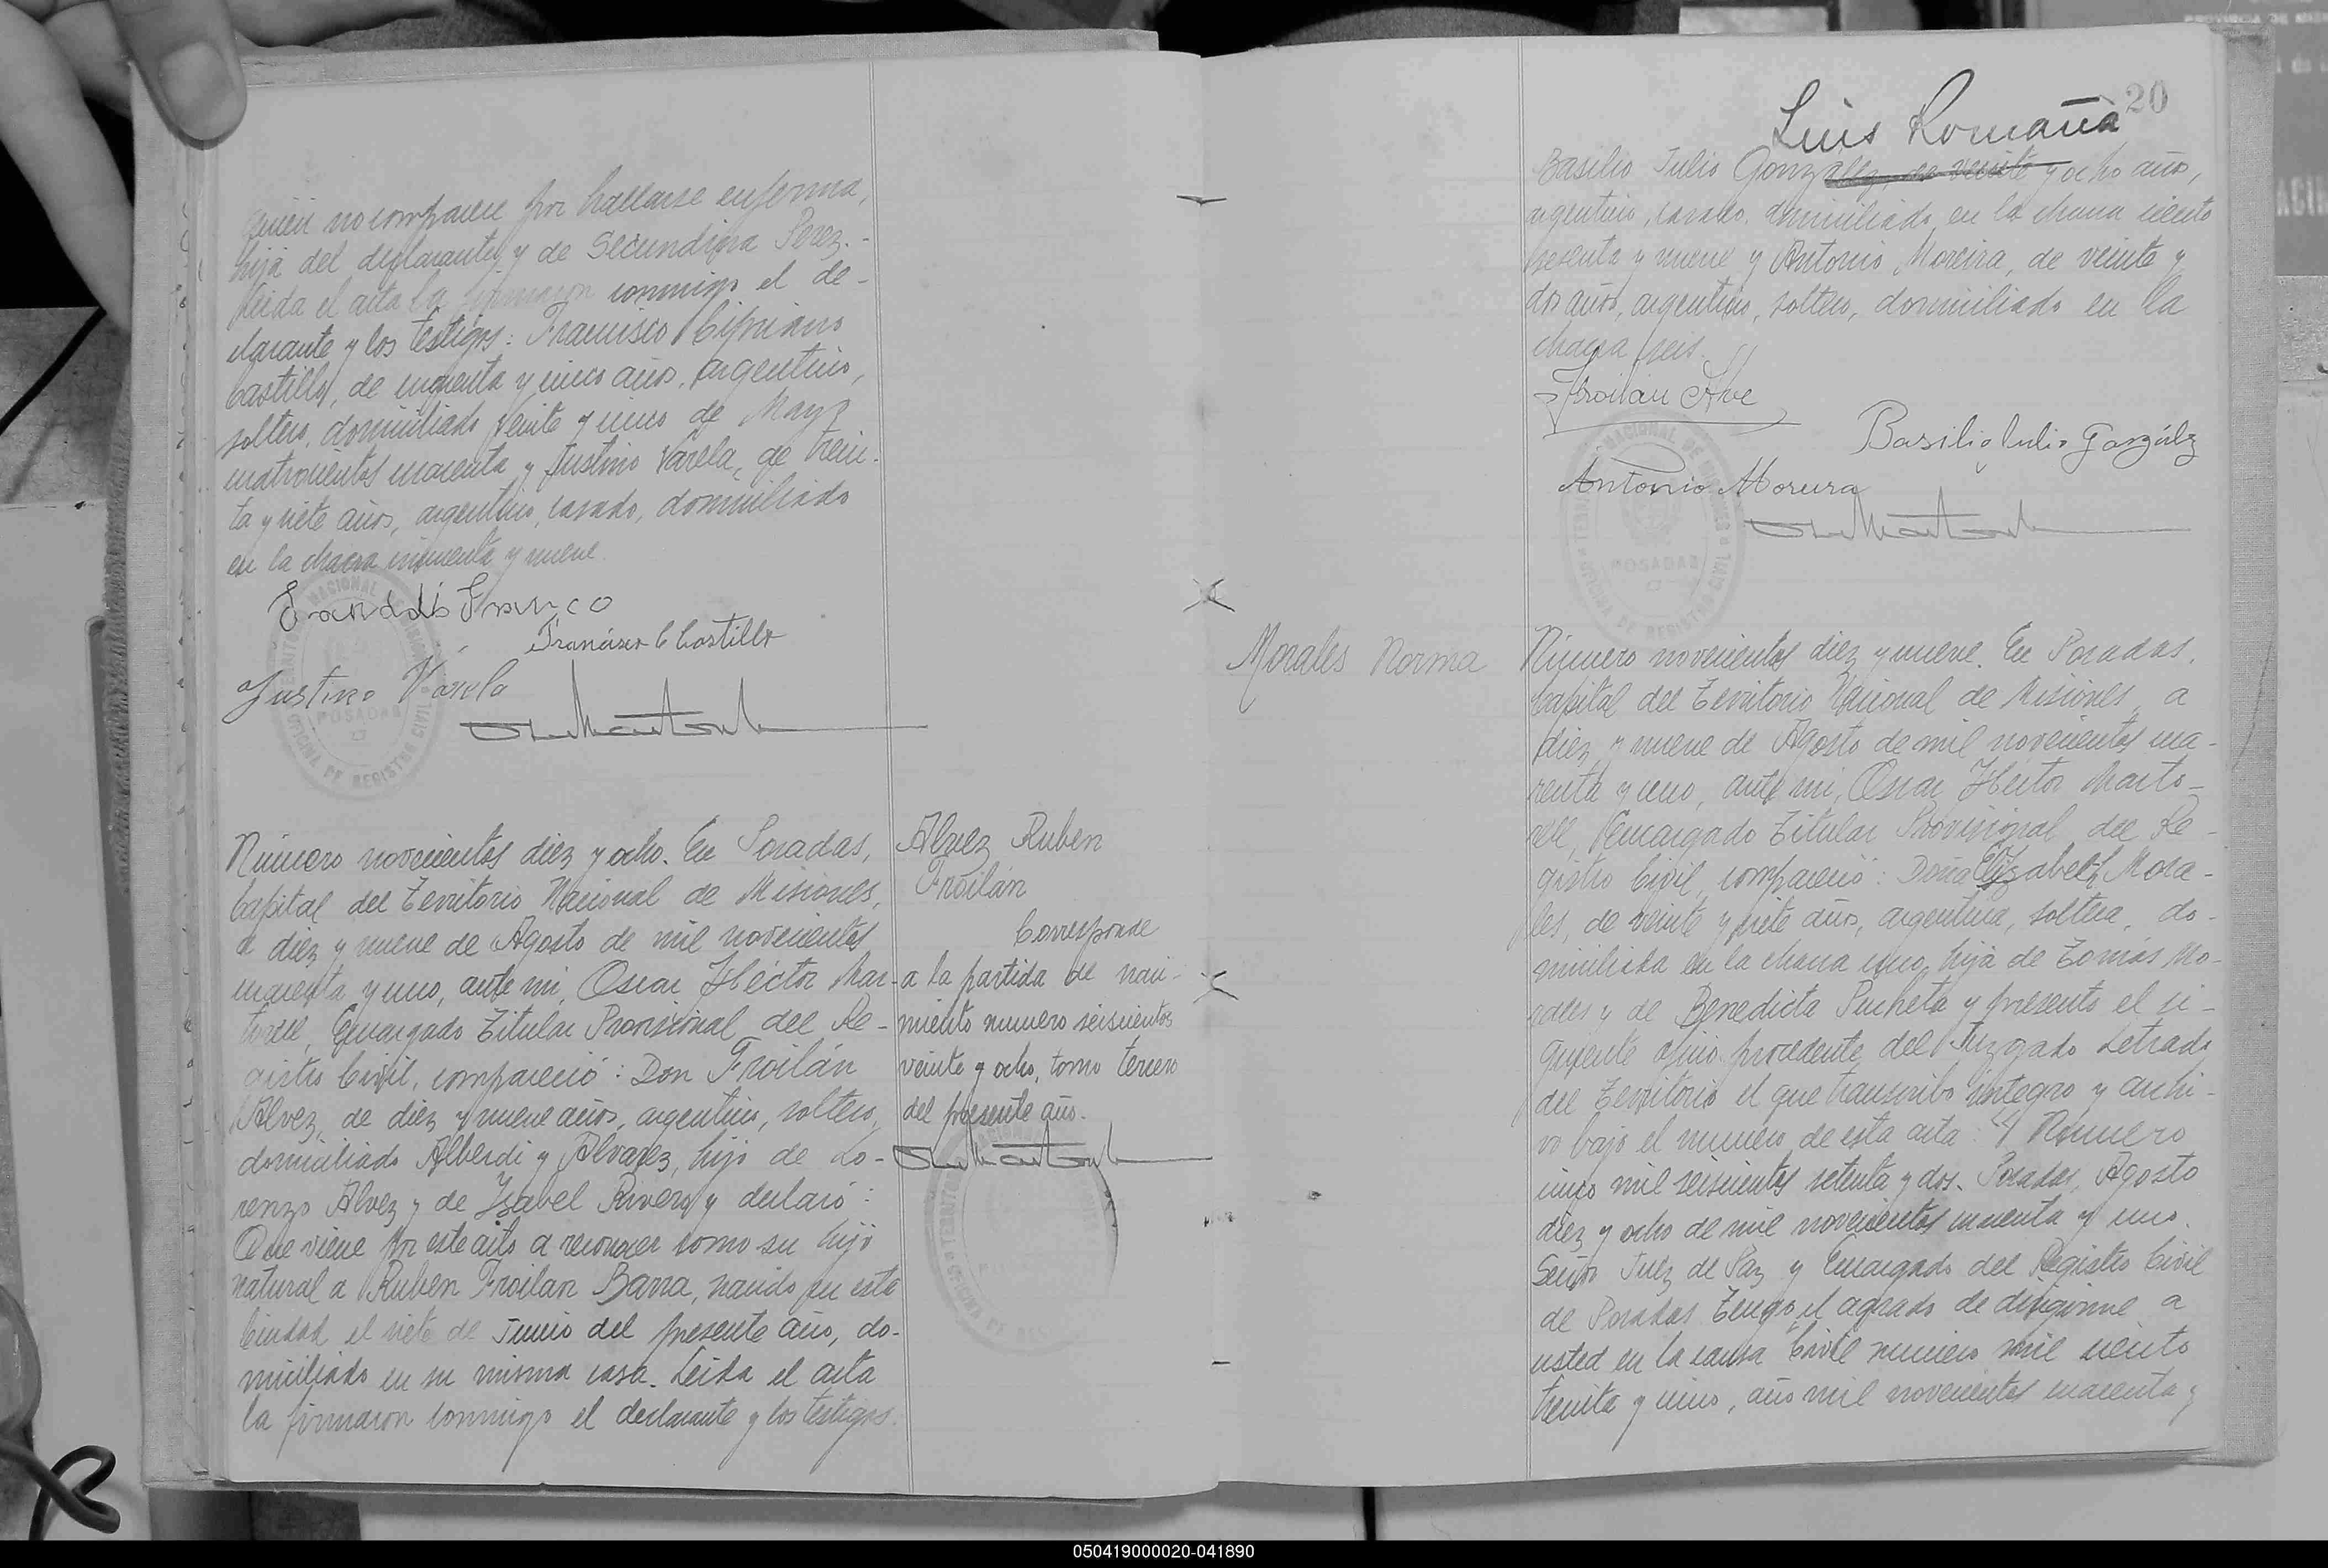 quien no comparece por hallarse enferma,
hija del declarante y de Secundina Perez.-
Leida el acta la firmaron conmigo el de-
clarante y los testigos: Francisco Cipriano
Castillo, de cuarenta y cinco años, argentino,
soltero, domiciliado Veinte y cinco de Mayo
cuatrocientos cuarenta y Justino Varela, de trein-
ta y siete años, argentino, casado, domiciliado
en la chacra cincuenta y nueve.
Franco
Francisco C Castillo
Justino Varela
Número novecientos diez y ocho. En Posadas,
Capital del Territorio Nacional de Misiones,
a diez y nueve de Agosto de mil novecientos
cuarenta y uno, ante mi, Oscar Héctor Mar-
torell, Encargado Titular Provisional del Re-
gistro Civil, compareció: Don Froilán
Alvez, de diez y nueve años, argentino, soltero,
domiciliado Alberdi y Alvarez, hijo de Lo-
renzo Alvez y de Ysabel Rivero y declaró:
Que viene por este acto a reconocer como su hijo
natural a Ruben Froilan Barra, nacido en esta
Ciudad el siete de Junio del presente año, do-
miciliado en su misma casa. Leida el acta
la firmaron conmigo el declarante y los testigos.
Alvez Ruben
Froilán
Corresponde
a la partida de naci-
miento numero seiscientos
veinte y ocho, tomo tercero
del presente año.
20
Luis Romañá
Basilio Julio González, de veinte y ocho años,
argentino, casado, domiciliado en la chacra ciento
sesenta y nueve y Antonio Moreira, de veinte y
dos años, argentino, soltero, domiciliado en la
chacra seis.
Froilan Alve
Basilio Julio González
Antonio Moreira
POSADAS
Morales Norma
Número novecientos diez y nueve. En Posadas,
Capital del Territorio Nacional de Misiones, a
diez y nueve de Agosto de mil novecientos cua-
renta y uno, ante mi, Oscar Héctor Marto-
rell, Encargado Titular Provisional del Re-
gistro Civil, compareció: Doña Elizabeth Mora-
les, de veinte y siete años, argentina, soltera, do-
miciliada en la chacra uno, hija de Tomás Mo-
rales y de Benedicta Pucheta y presento el si-
guiente oficio procedente del Juzgado Letrado
del Territorio el que transcribo integro y archi-
vo bajo el numero de esta acta: "Numero
cinco mil seiscientos setenta y dos. Posadas, Agosto
diez y ocho de mil novecientos cuarenta y uno.
Señor Juez de Paz y Encargado del Registro Civil
de Posadas. Tengo el agrado de dirigirme a
usted en la causa Civil numero mil ciento
treinta y cinco, año mil novecientos cuarenta y
050419000020-041890